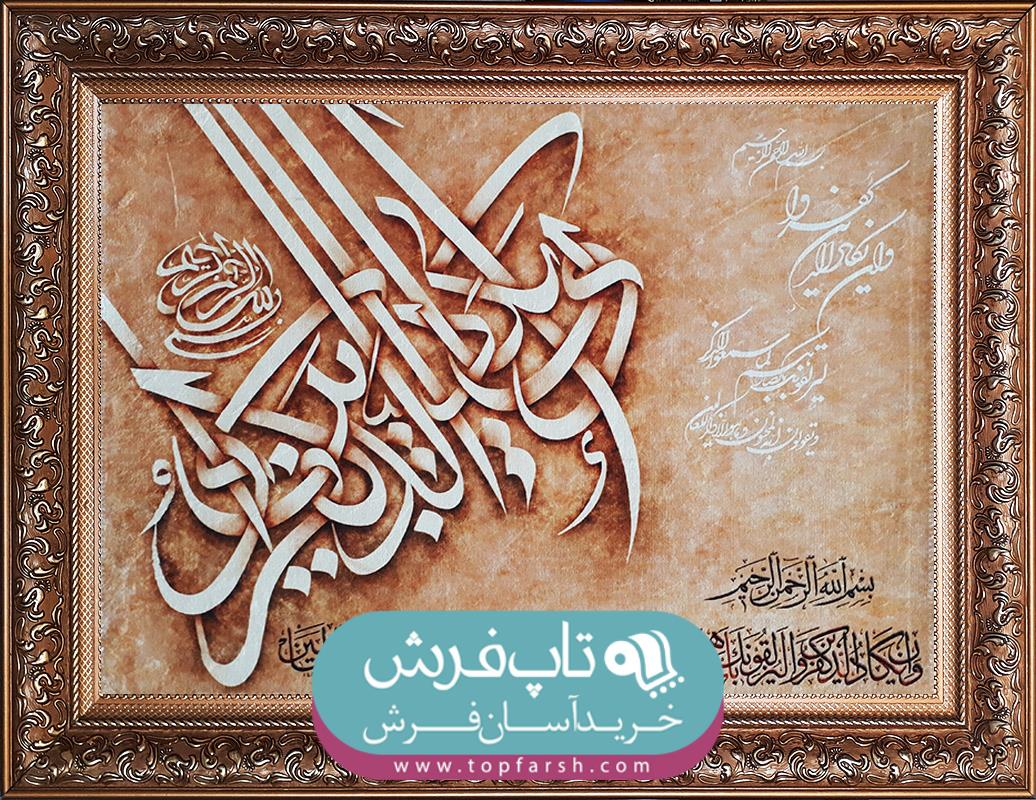 بسم الله الرحمن الرحیم
وان یکاد الذین کفروا
لیزلقونک بابصارهم لما سمعوا الذکر
ویقولون انه لمجنون وما هو الا ذکر للعالمین
بسم الله الرحمن الرحیم
وإن یکاد الذین کفروا
بِسْمِ اللهِ الرَّحْمنِ الرَّحِیمِ
وان یکاد الذین کفروا لیزلقونک
تاپ فرش
خرید آسان فرش
www.topfarsh.com